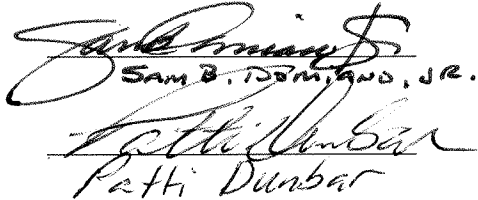 Sam B. Domiano Jr.
SAM B. DOMIANO, JR.
Patti Dunbar
Patti Dunbar